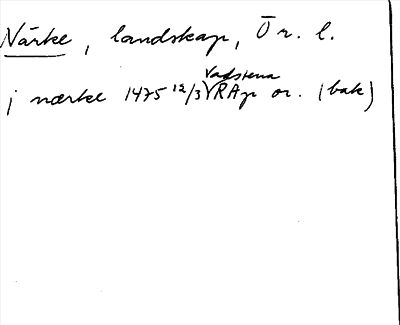 Närke, landskap, Ör. l.
i nærke 1475 12/3 Vadstena RAp or. (bak)